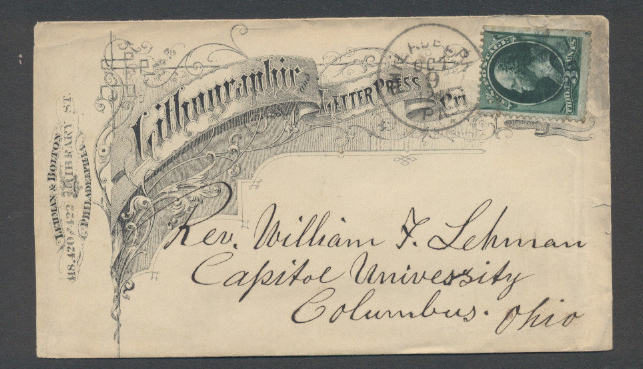 Lithographic
AND
LETTER PRESS
Pri
LEHMAN & BOLTON
418, 420 & 422 LIBRARY ST.
PHILADELPHIA
PHILADELPHIA
OCT
9
PA.
Rev. William F. Lehman
Capitol University
Columbus. Ohio